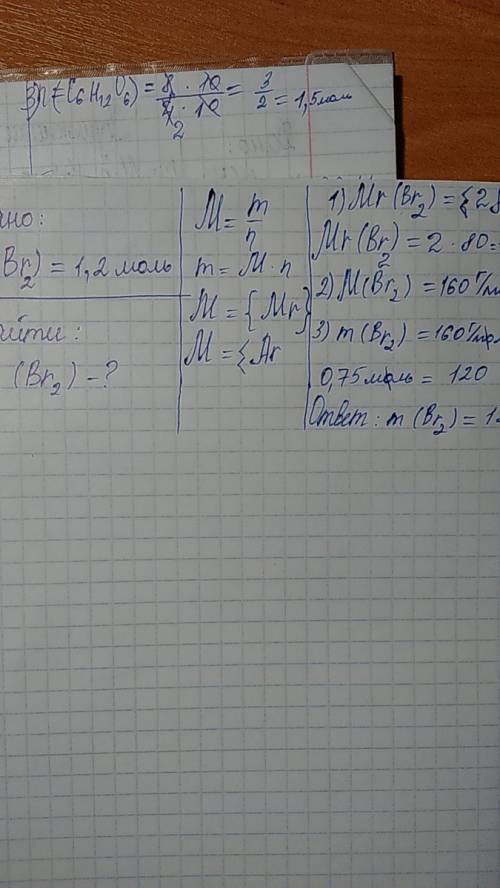 n(C₆H₁₂O₆) = 10 / 10 = 3/2 = 1,5 моль
2
ано:
Br₂) = 1,2 моль
айти:
(Br₂) - ?
M = m/n
m = M · n
M = {Mr}
M = {Ar
1) Mr (Br₂) = {2 8
Mr (Br₂) = 2 · 80 =
2) M(Br₂) = 160 г/
3) m (Br₂) = 160 г/
0,75 моль = 120
Ответ: m (Br₂) = 1